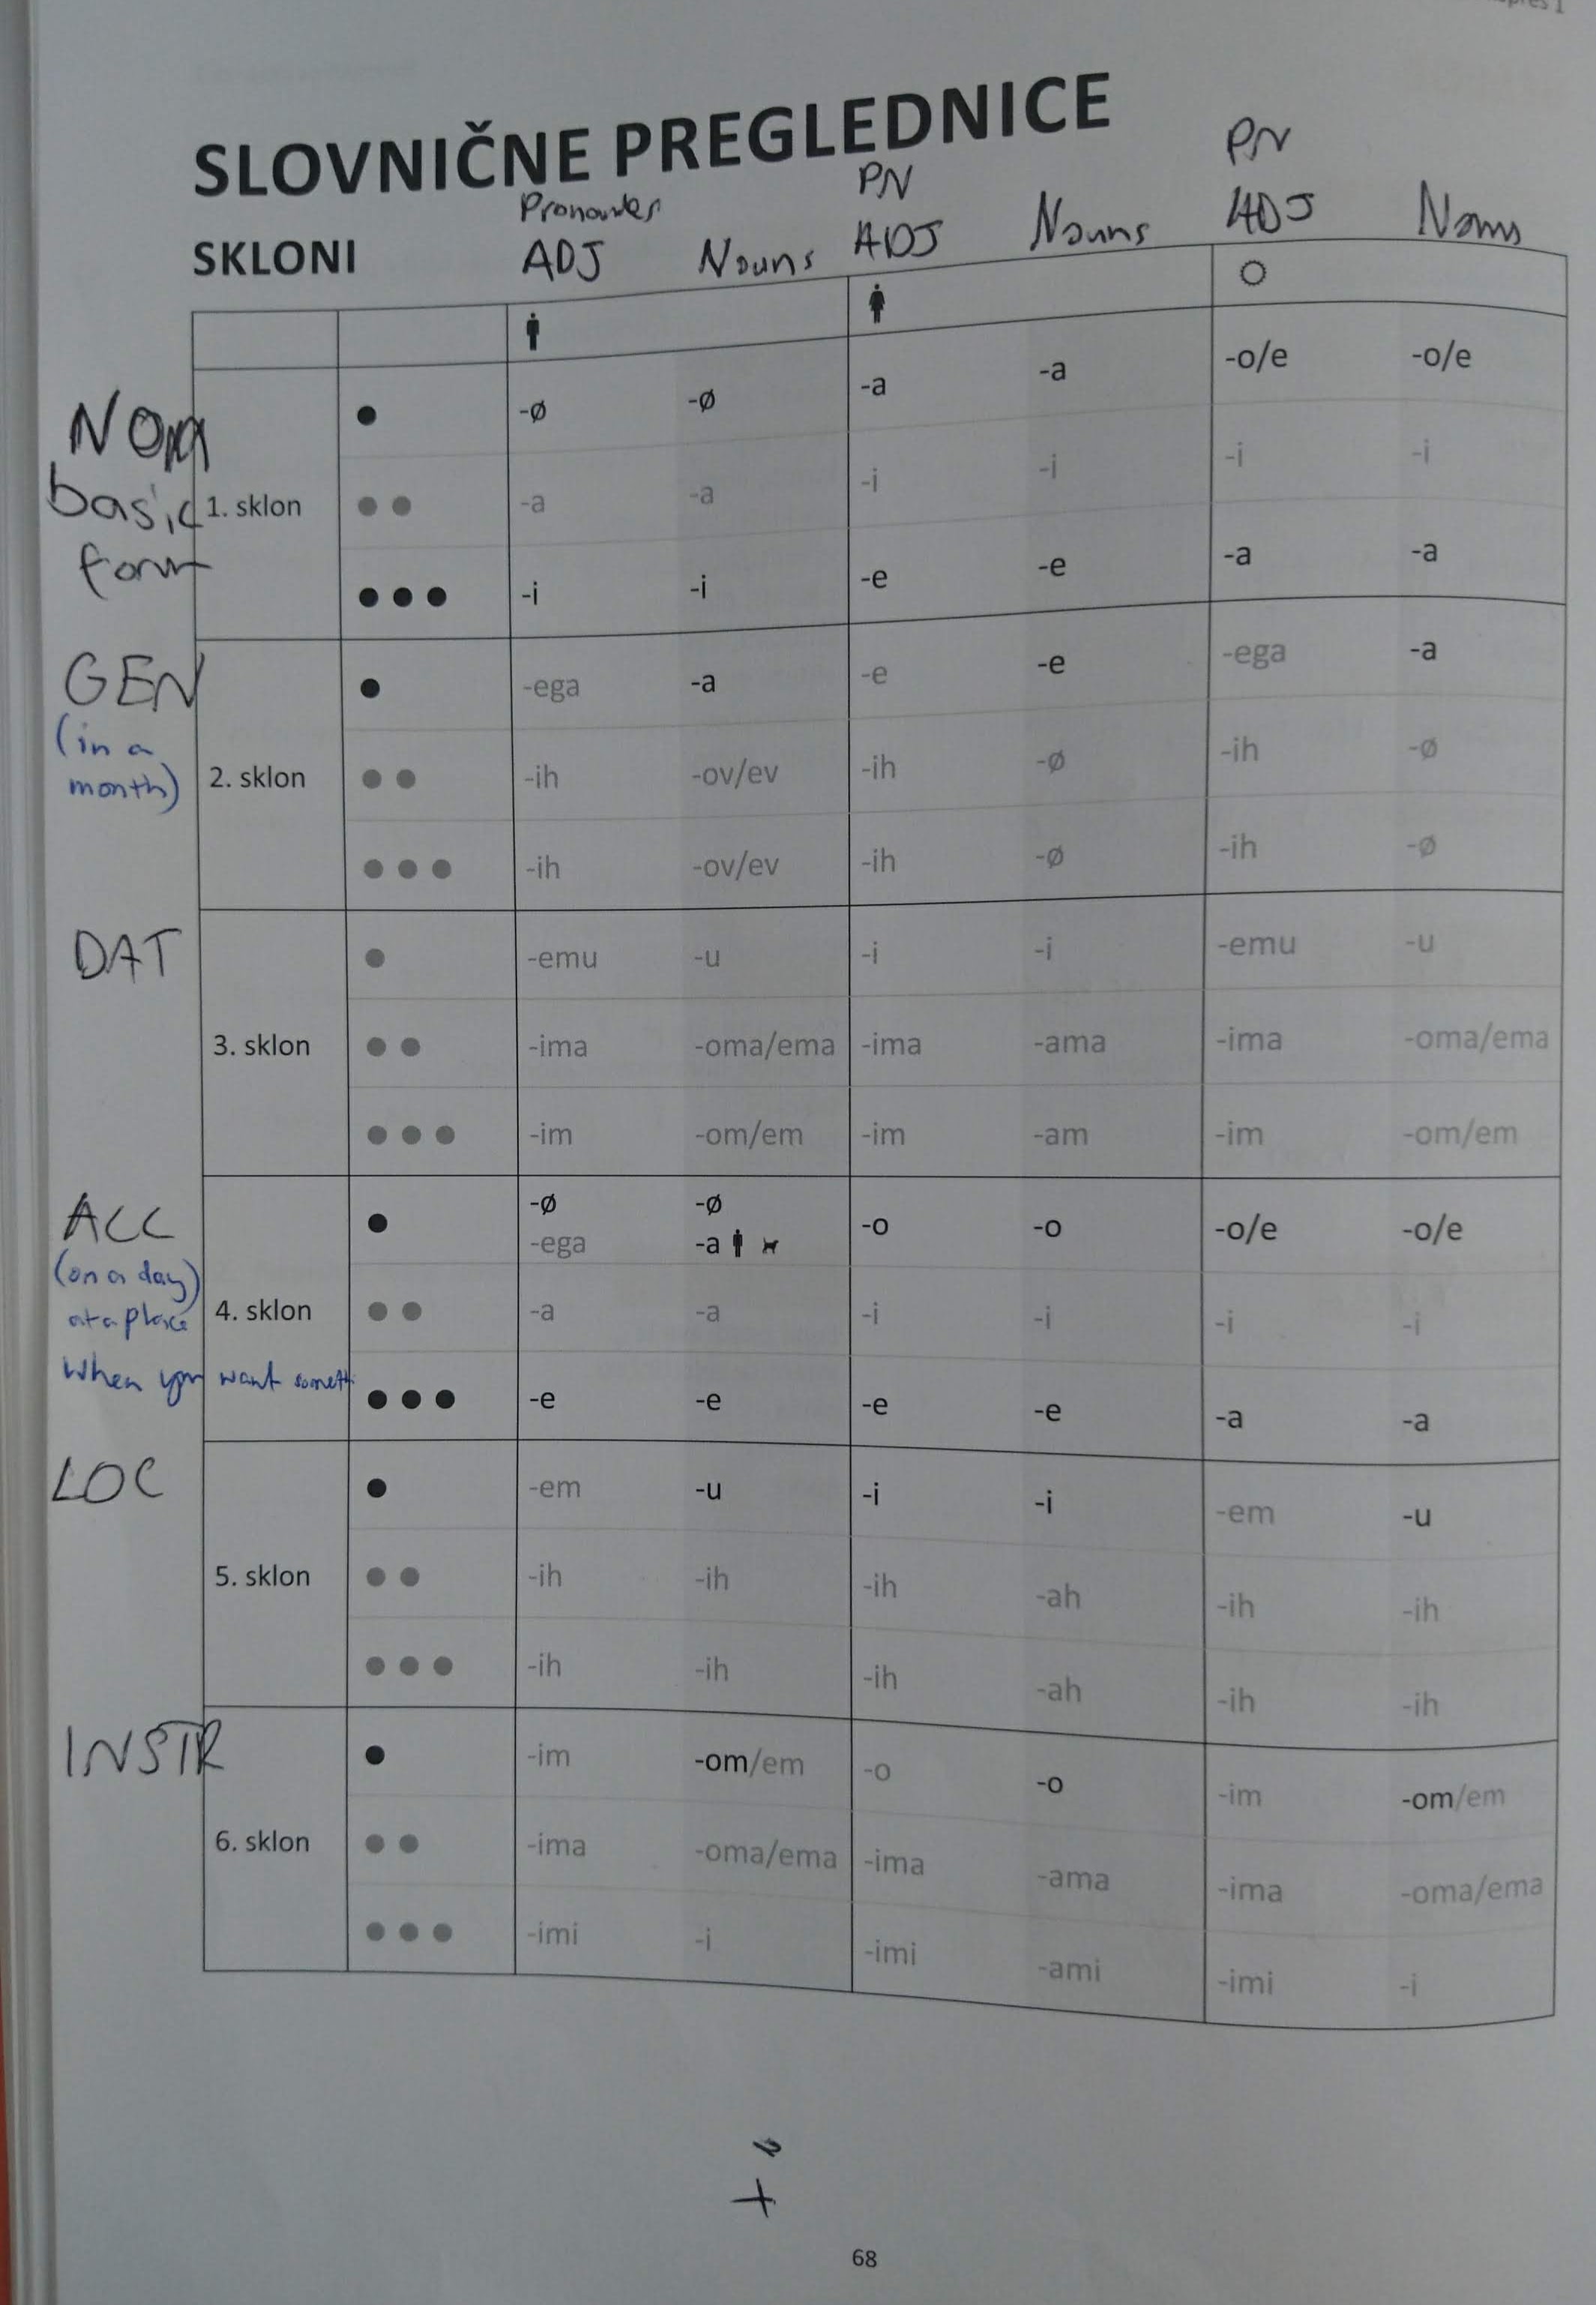 SLOVNIČNE PREGLEDNICE
SKLONI
ADJ Nouns PN ADJ Nouns PN ADJ Nouns
NOM basic form
1. sklon
● -ø -ø -a -a -o/e -o/e
●● -a -a -i -i -i -i
●●● -i -i -e -e -a -a
GEN (in a month)
2. sklon
● -ega -a -e -e -ega -a
●● -ih -ov/ev -ih -ø -ih -ø
●●● -ih -ov/ev -ih -ø -ih -ø
DAT
3. sklon
● -emu -u -i -i -emu -u
●● -ima -oma/ema -ima -ama -ima -oma/ema
●●● -im -om/em -im -am -im -om/em
ACC (on a day) at a place
When you want
4. sklon
● -ø -ø -o -o -o/e -o/e
-ega -a
●● -a -a -i -i -i -i
●●● -e -e -e -e -a -a
LOC
5. sklon
● -em -u -i -i -em -u
●● -ih -ih -ih -ah -ih -ih
●●● -ih -ih -ih -ah -ih -ih
INSTR
6. sklon
● -im -om/em -o -o -im -om/em
●● -ima -oma/ema -ima -ama -ima -oma/ema
●●● -imi -i -imi -ami -imi -i
68